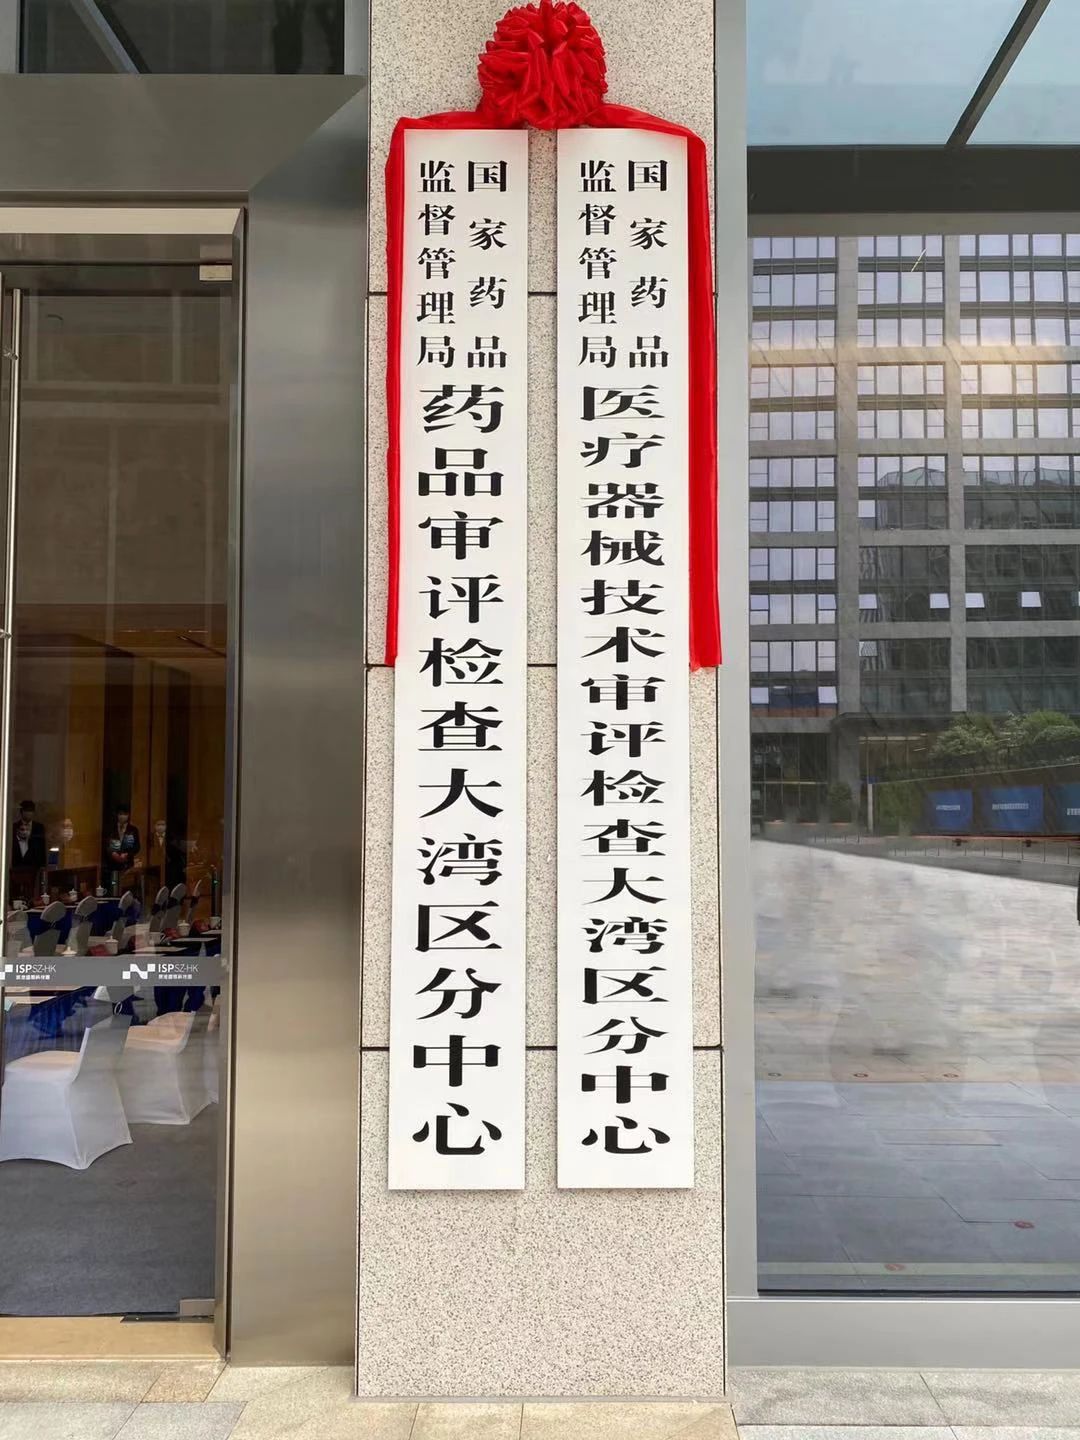 国家药品
监督管理局
医疗器械技术审评检查大湾区分中心
国家药品
监督管理局
药品审评检查大湾区分中心
ISPSZ-HK
ISPSZ-HK